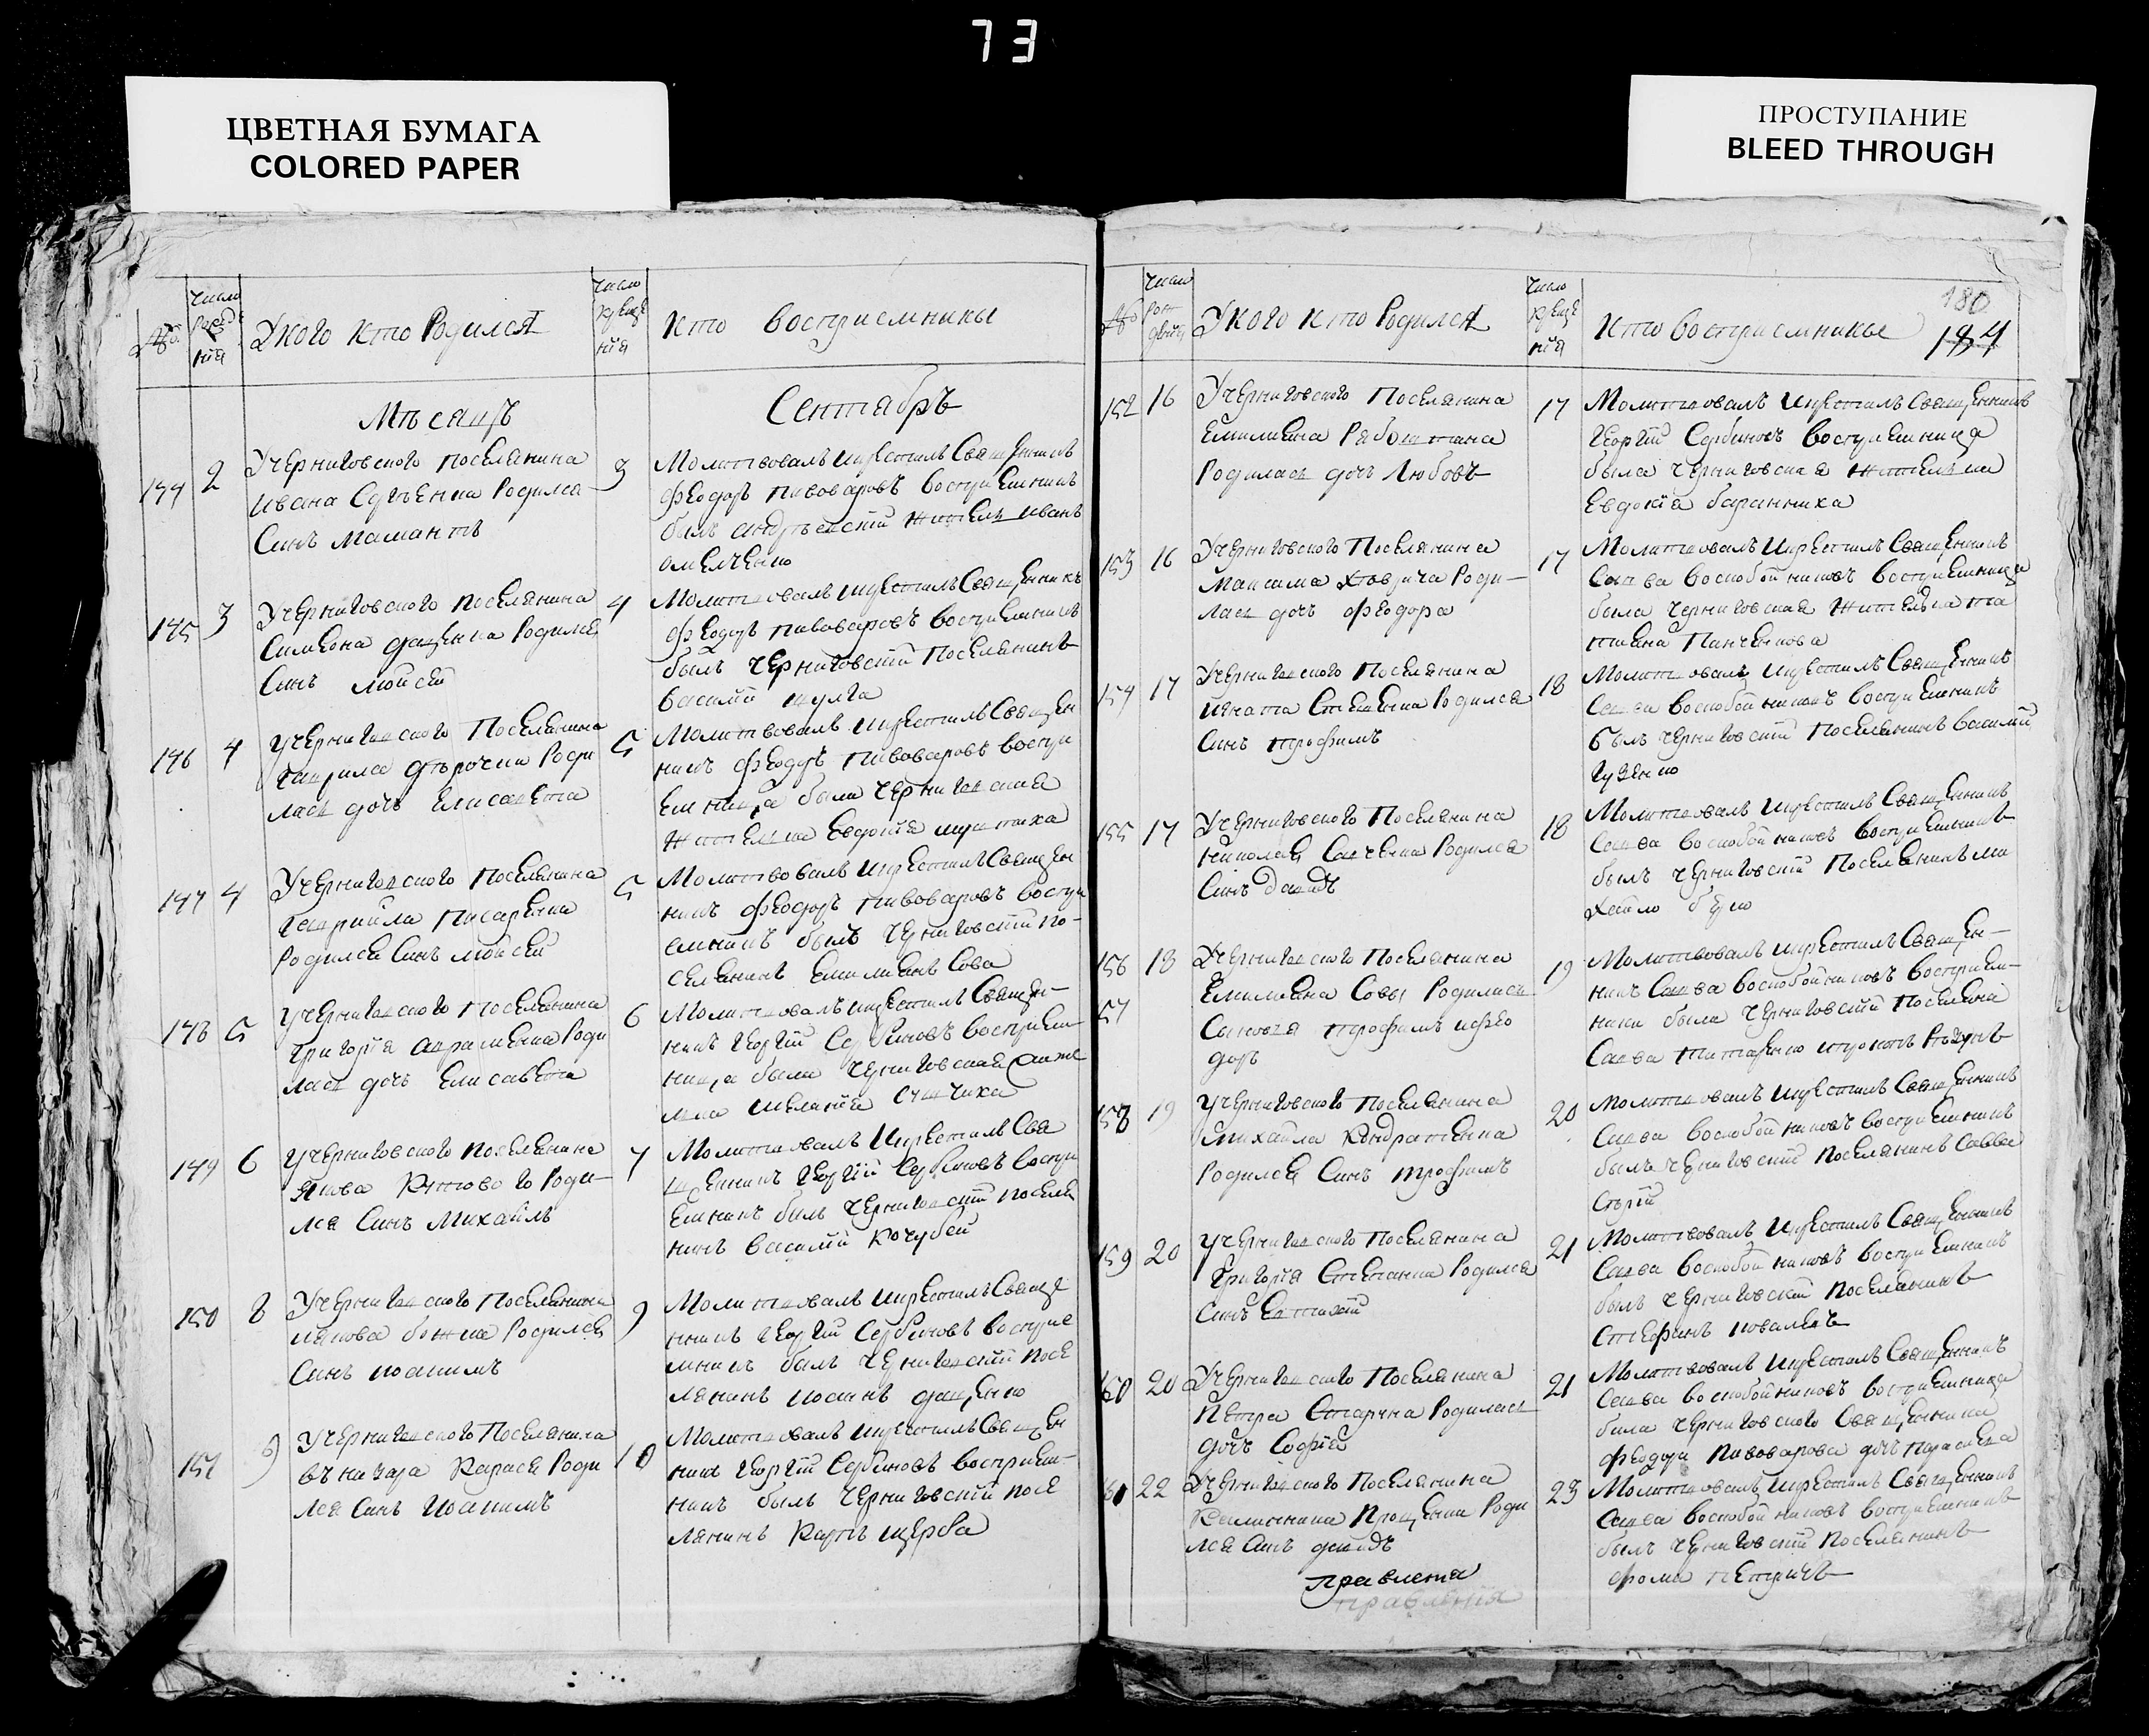 73
ЦВЕТНАЯ БУМАГА
COLORED PAPER
ПРОСТУПАНИЕ
BLEED THROUGH
число
рожде
нія
Укого кто Родился
число
крещѣ
нія
кто восприемники
Мѣсяцъ
Сентябръ
144 2
Учерниговского поселянина
Ивана Сергѣенка Родился
Синъ Мамантъ
3
Молитвовалъ икрестилъ Священникъ
Феодоръ Пивоваровъ восприемникъ
былъ андрѣевскій житель иванъ
омелченко
145 3
Учерниговского поселянина
Симеона дащенка Родился
Синъ мойсей
4
Молитвовалъ икрестилъ Священникъ
Феодоръ пивоваровъ восприемникъ
былъ черниговскій Поселянинъ
василій шулга
146 4
Учерниговского Поселянина
гаврила Родилась дочь Елисавета
5
Молитвовалъ икрестилъ Священ
никъ Феодоръ Пивоваровъ воспри
емница была черниговская
жителка Евдокія
147 4
Учерниговского Поселянина
гавриила Писаренка
Родился Синъ мойсей
5
Молитвовалъ икрестилъ Священ
никъ Феодоръ Пивоваровъ воспри
емникъ былъ черниговскій по-
селянинъ Емилианъ Сова
148 5
Учерниговского Поселянина
Григорія авраменка Роди
лась дочь Елисавета
6
Молитвовалъ икрестилъ Священ-
никъ Георгій Сербиновъ восприем
ница была черниговская жите
лка Меланія
149 6
Учерниговского Поселянина
Якова Роди-
лся Синъ Михаилъ
7
Молитвовалъ икрестилъ Свя
щенникъ Георгій Сербиновъ воспри
емникъ былъ черниговскій поселя
нинъ василій Кочубей
150 8
Учерниговского Поселянина
иякова божка Родился
Синъ иоакимъ
9
Молитвовалъ икрестилъ Свяще
нникъ Георгій Сербиновъ восприе
мникъ былъ черниговскій посе
лянинъ иоанъ дащенко
151 9
Учерниговского Поселянина
Карася Роди
лся Синъ Иоакимъ
10
Молитвовалъ икрестилъ Священ
никъ Георгій Сербиновъ восприем-
никъ былъ черниговскій посе
лянинъ Карпъ щерба
число
рож
денія
Укого кто Родился
число
крещѣ
нія
кто восприемники
180
184
152 16
Учерниговского Поселянина
Емилияна Рябоштана
Родилась дочь Любовъ
17
Молитвовалъ икрестилъ Священникъ
Георгій Сербиновъ восприемница
была черниговская жителька
Евдокія баранниха
153 16
Учерниговского Поселянина
Максима Роди-
лась дочь феодора
17
Молитвовалъ икрестилъ Священникъ
Савва воскобойниковъ восприемница
была черниговская жителька та
тияна Панченкова
154 17
Учерниговского Поселянина
игната Стеценка Родился
Синъ трофимъ
18
Молитвовалъ икрестилъ Священникъ
Савва воскобойниковъ восприемникъ
былъ черниговскій Поселянинъ василий
гузенко
155 17
Учерниговского Поселянина
николая Савченка Родился
Синъ давидъ
18
Молитвовалъ икрестилъ Священникъ
Савва воскобойниковъ восприемникъ
былъ черниговскій Поселянинъ ми
хайло
156 18
57
Учерниговского Поселянина
Емилияна Совы Родились
Сыновья трофимъ ифео
доръ
19
Молитвовалъ икрестилъ Священ-
никъ Савва воскобойниковъ восприем-
ники были черниговскій Поселяни
Савва титаренко
158 19
Учерниговского Поселянина
Михайла Кондратенка
Родился Синъ трофимъ
20
Молитвовалъ икрестилъ Священникъ
Савва воскобойниковъ восприемникъ
былъ черниговскій Поселянинъ Савва
Сѣрій
159 20
Учерниговского Поселянина
Григорія Степанка Родился
Синъ Евтихій
21
Молитвовалъ икрестилъ Священникъ
Савва воскобойниковъ восприемникъ
былъ черниговскій Поселянинъ
Стефанъ ковалевъ
160 20
Учерниговского Поселянина
Петра Родилась
дочь Софія
21
Молитвовалъ икрестилъ Священникъ
Савва воскобойниковъ восприемница
била черниговского Священника
феодора Пивоварова дочь параскева
61 22
Учерниговского Поселянина
Калинника Проценка Роди
лся Синъ давидъ
23
Молитвовалъ икрестилъ Священникъ
Савва воскобойниковъ восприемникъ
былъ черниговскій Поселянинъ
фома петричъ
правлена
правлена